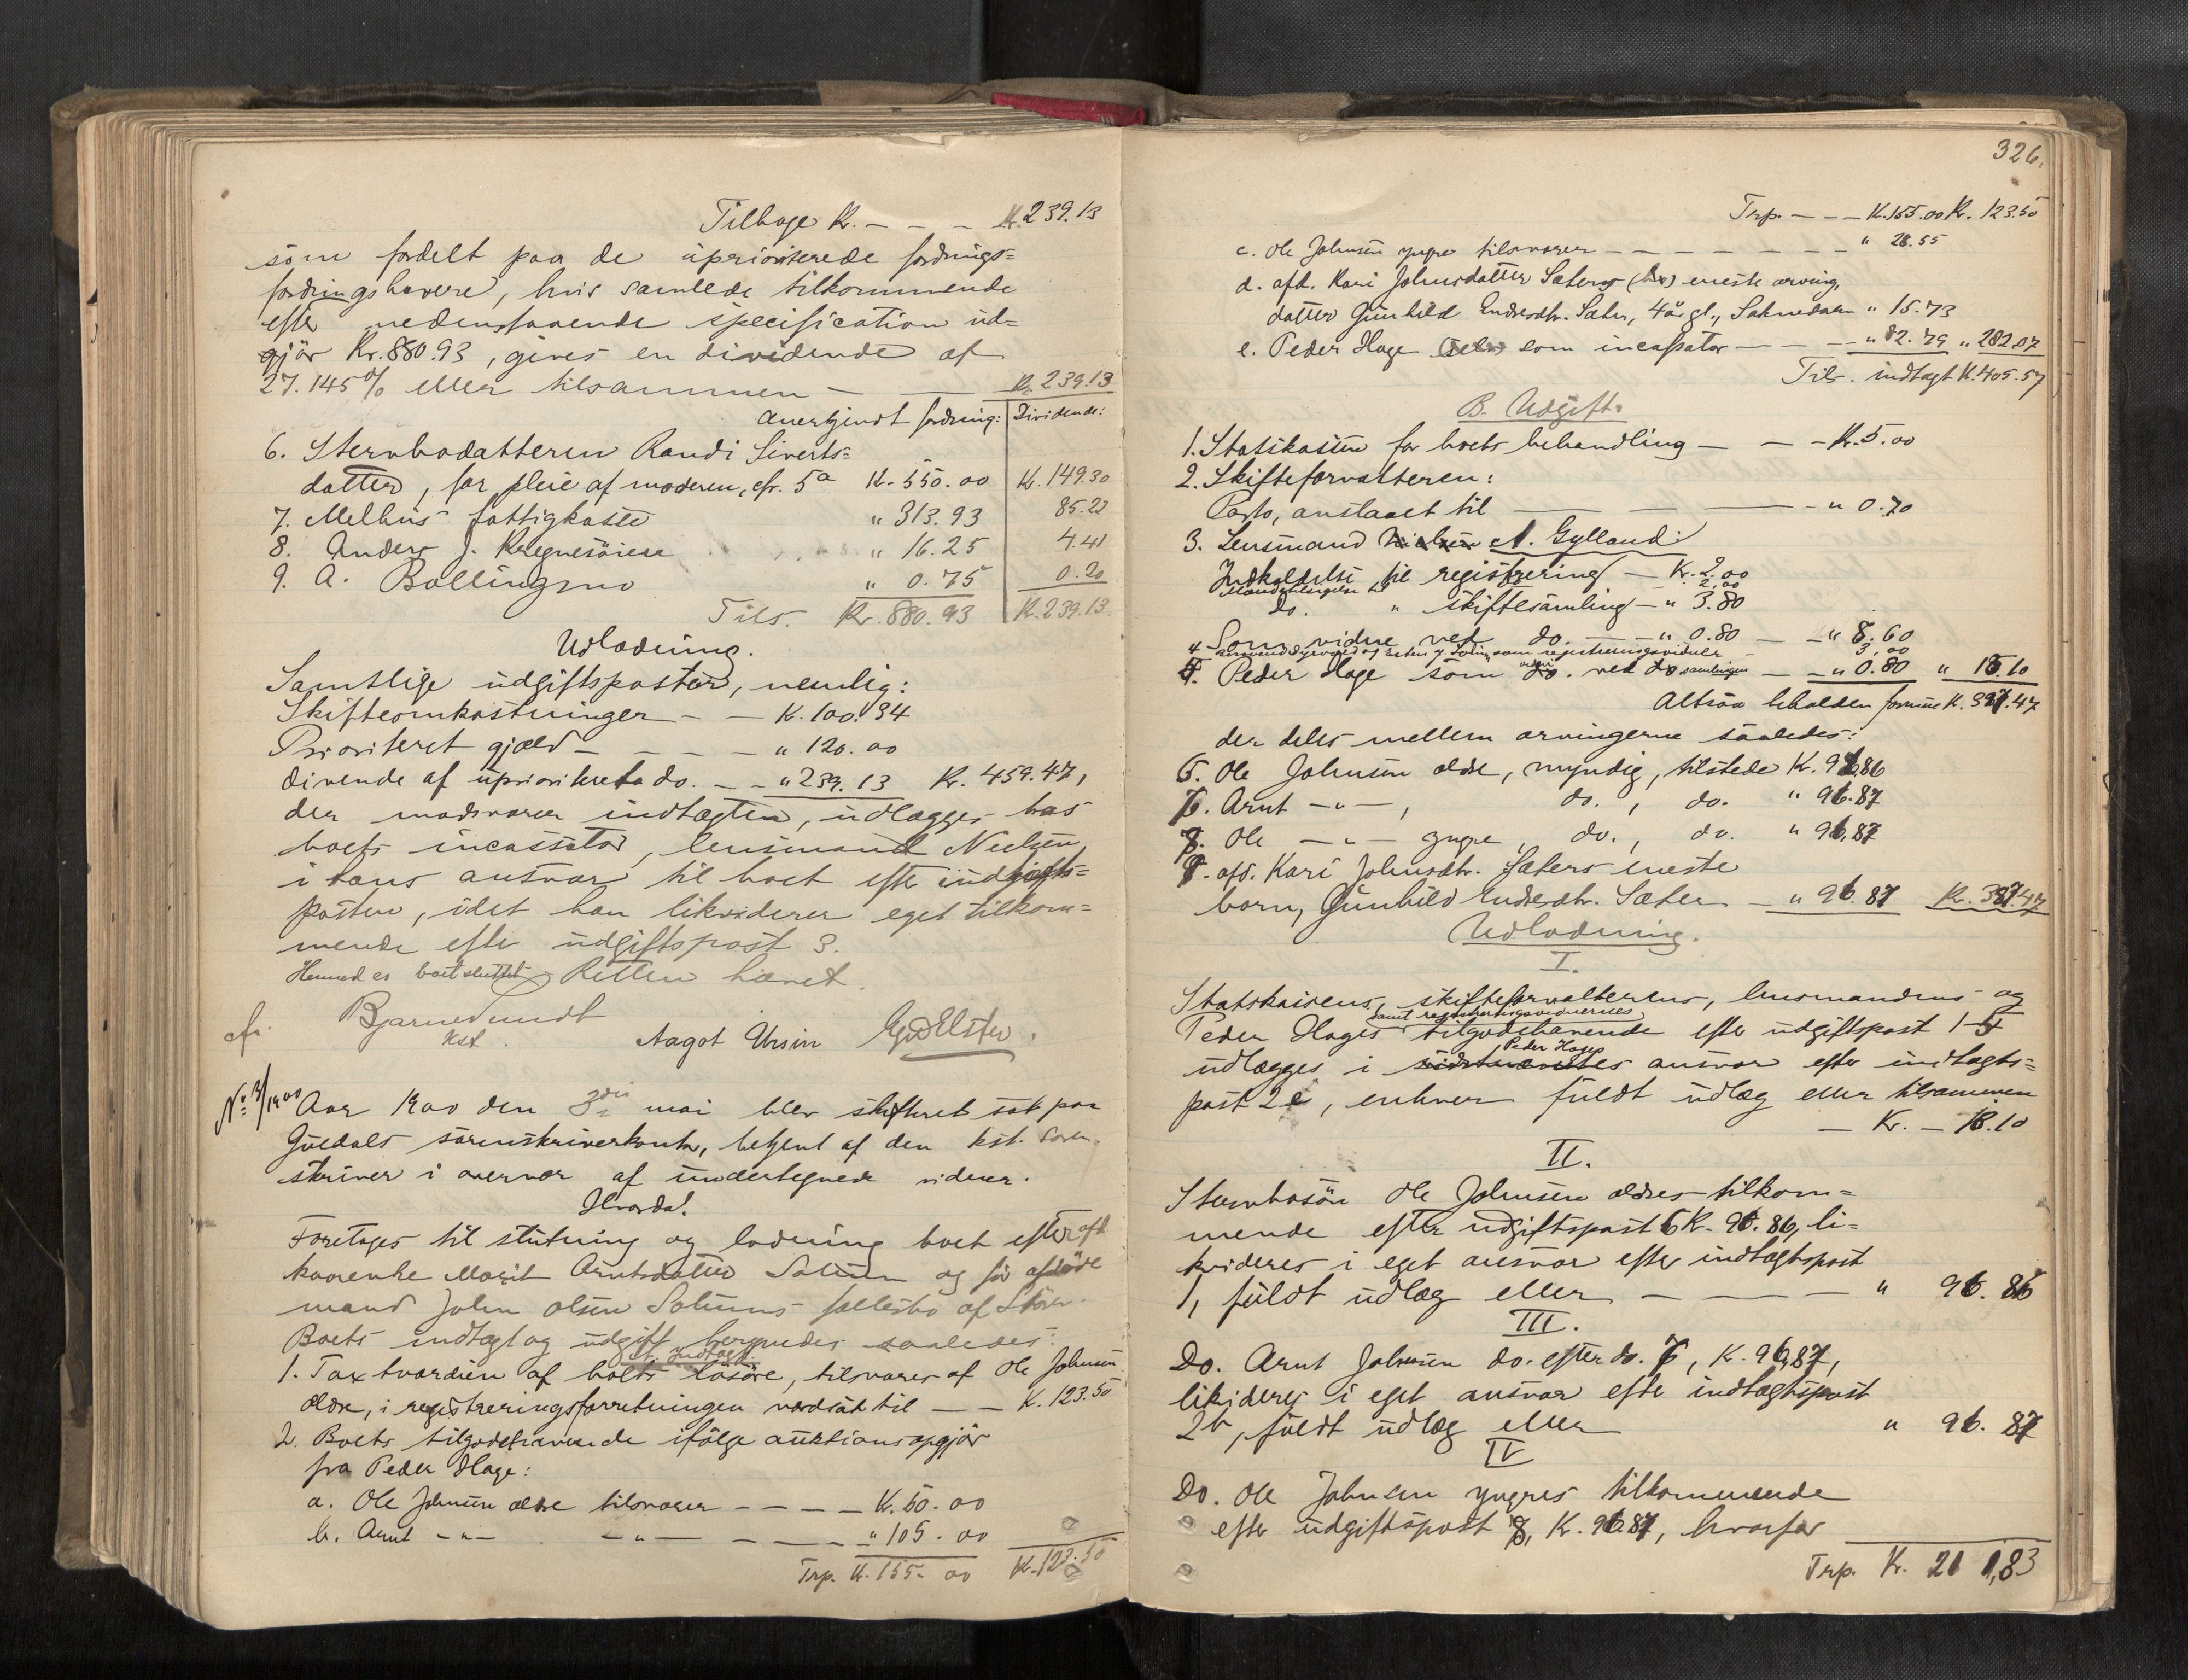 Tilbage Kr. - - - Kr. 239.13
som fordelt paa de uprioriterede fordrings=
fordringshavere, hvis samlede tilkommende
efter nedenstaaende specification ud=
gjör Kr. 880.93, gives en dividende af
27.145% eller tilsammen - - Kr. 239.13
Anerkjendt fordring: Dividende:
6. Stervbodatteren Randi Siverts=
datter, for pleie af moderen, cfr. 5a Kr. 550.00 Kr. 149.30
7. Melhus fattigkasse " 313.93 85.22
8. Anders J. " 16.25 4.41
9. A. Bollingmo " 0.75 0.20
Tils. Kr. 880.93 Kr. 239.13
Udlodning.
Samtlige udgiftsposter, nemlig:
Skifteomkostninger - - Kr. 100.34
Prioriteret gjæld - - - - " 120.00
divende af uprioriterte do. - - " 239.13 Kr. 459.47,
der modsvarer indtægten, udlægges hos
boets incassator, lensmand Nielsen,
i hans ansvar til boet efter indtægts=
posten, idet han likviderer eget tilkom=
mende efter udgiftspost 3.
Hermed er boet sluttet. Retten hævet.
cfr. Bjarne Lundt
kst. Aagot Ursin Elster.
No. 3/1900 Aar 1900 den 3die mai blev skifteret sat paa
Guldals sorenskriverkontor, betjent af den kst. soren-
skriver i overvær af undertegnede vidner.
Hvorda!
Foretages til slutning og lodning boet efter afd
kaarenke Marit Arntsdatter Solum og før afdöde
mand John Olsen Solums fællesbo af Stören.
Boets indtægt og udgift beregnedes saaledes:
A. Indtægt.
1. Taxtværdien af boets lösöre, tilsvares af Ole Johnsen
ældre, i registreringsforretningen værdsat til - - K. 123.50
2. Boets tilgodehavende ifölge auktionsopgjör
fra Peder Hage:
a. Ole Johnsen ældre tilsvarer - - - - Kr. 50.00
b. Arnt - " - - " - - - - - " 105.00
Trp. Kr. 155.00 Kr. 123.50
326.
Trp. - - - Kr. 155.00 Kr. 123.50
c. Ole Johnsen yngre tilsvarer - - - - - - - " 28.55
d. afd. Kari Johnsdatter Sæters eneste arving,
datter Gunhild Endresdtr. Sæter, 4 år gl., Soknedalen " 15.73
e. Peder Hage som incassator - - - " 82.79 " 282.07
Tils. indtægt Kr. 405.57
B. Udgift.
1. Statskassen for boets behandling - - - Kr. 5.00
2. Skifteforvalteren:
Porto, anslaaet til - - - " 0.70
3. Lensmand Nielsen A. Gylland:
Indkaldelse til registrering - Kr. 2.00
do. " skiftesamling - " 3.80
Som vidne ved do. - - " 0.80 - - " 8.60
4. som registreringsvidner 3.00
5. Peder Hage som do. ved do samlingen - - " 0.80 " 18.10
Altsaa beholden formue K. 387.47
der deles mellem arvingerne saaledes:
6. Ole Johnsen ældre, myndig, tilstede K. 96.86
7. Arnt - " - , do. , do. " 96.87
8. Ole - " - yngre, do., do. " 96.87
9. afd. Kari Johnsdtr. Sæters eneste
barn, Gunhild Endresdtr. Sæter - " 96.87 Kr. 387.47
Udlodning.
I.
Statskassens, skifteforvalterens, lensmandens og
samt registreringsvidnernes
Peder Hages tilgodehavende efter udgiftspost 1-5
Peder Hages
udlægges i sidstnævntes ansvar efter indtægts=
post 2e, enhver fuldt udlæg eller tilsammen
- Kr. - 18.10
II.
Stervbosön Ole Johnsen ældres tilkom=
mende efter udgiftspost 6 Kr. 96.86, li=
kvideres i eget ansvar efter indtægtspost
1, fuldt udlæg eller - - - - " 96.86
III.
Do. Arnt Johnsen do. efter do. 7, K. 96.87,
likvideres i eget ansvar efter indtægtspost
2b, fuldt udlæg eller " 96.87
IV
Do. Ole Johnsen yngres tilkommende
efter udgiftspost 8, K. 96.87, hvorfor
Trp. Kr. 211,83